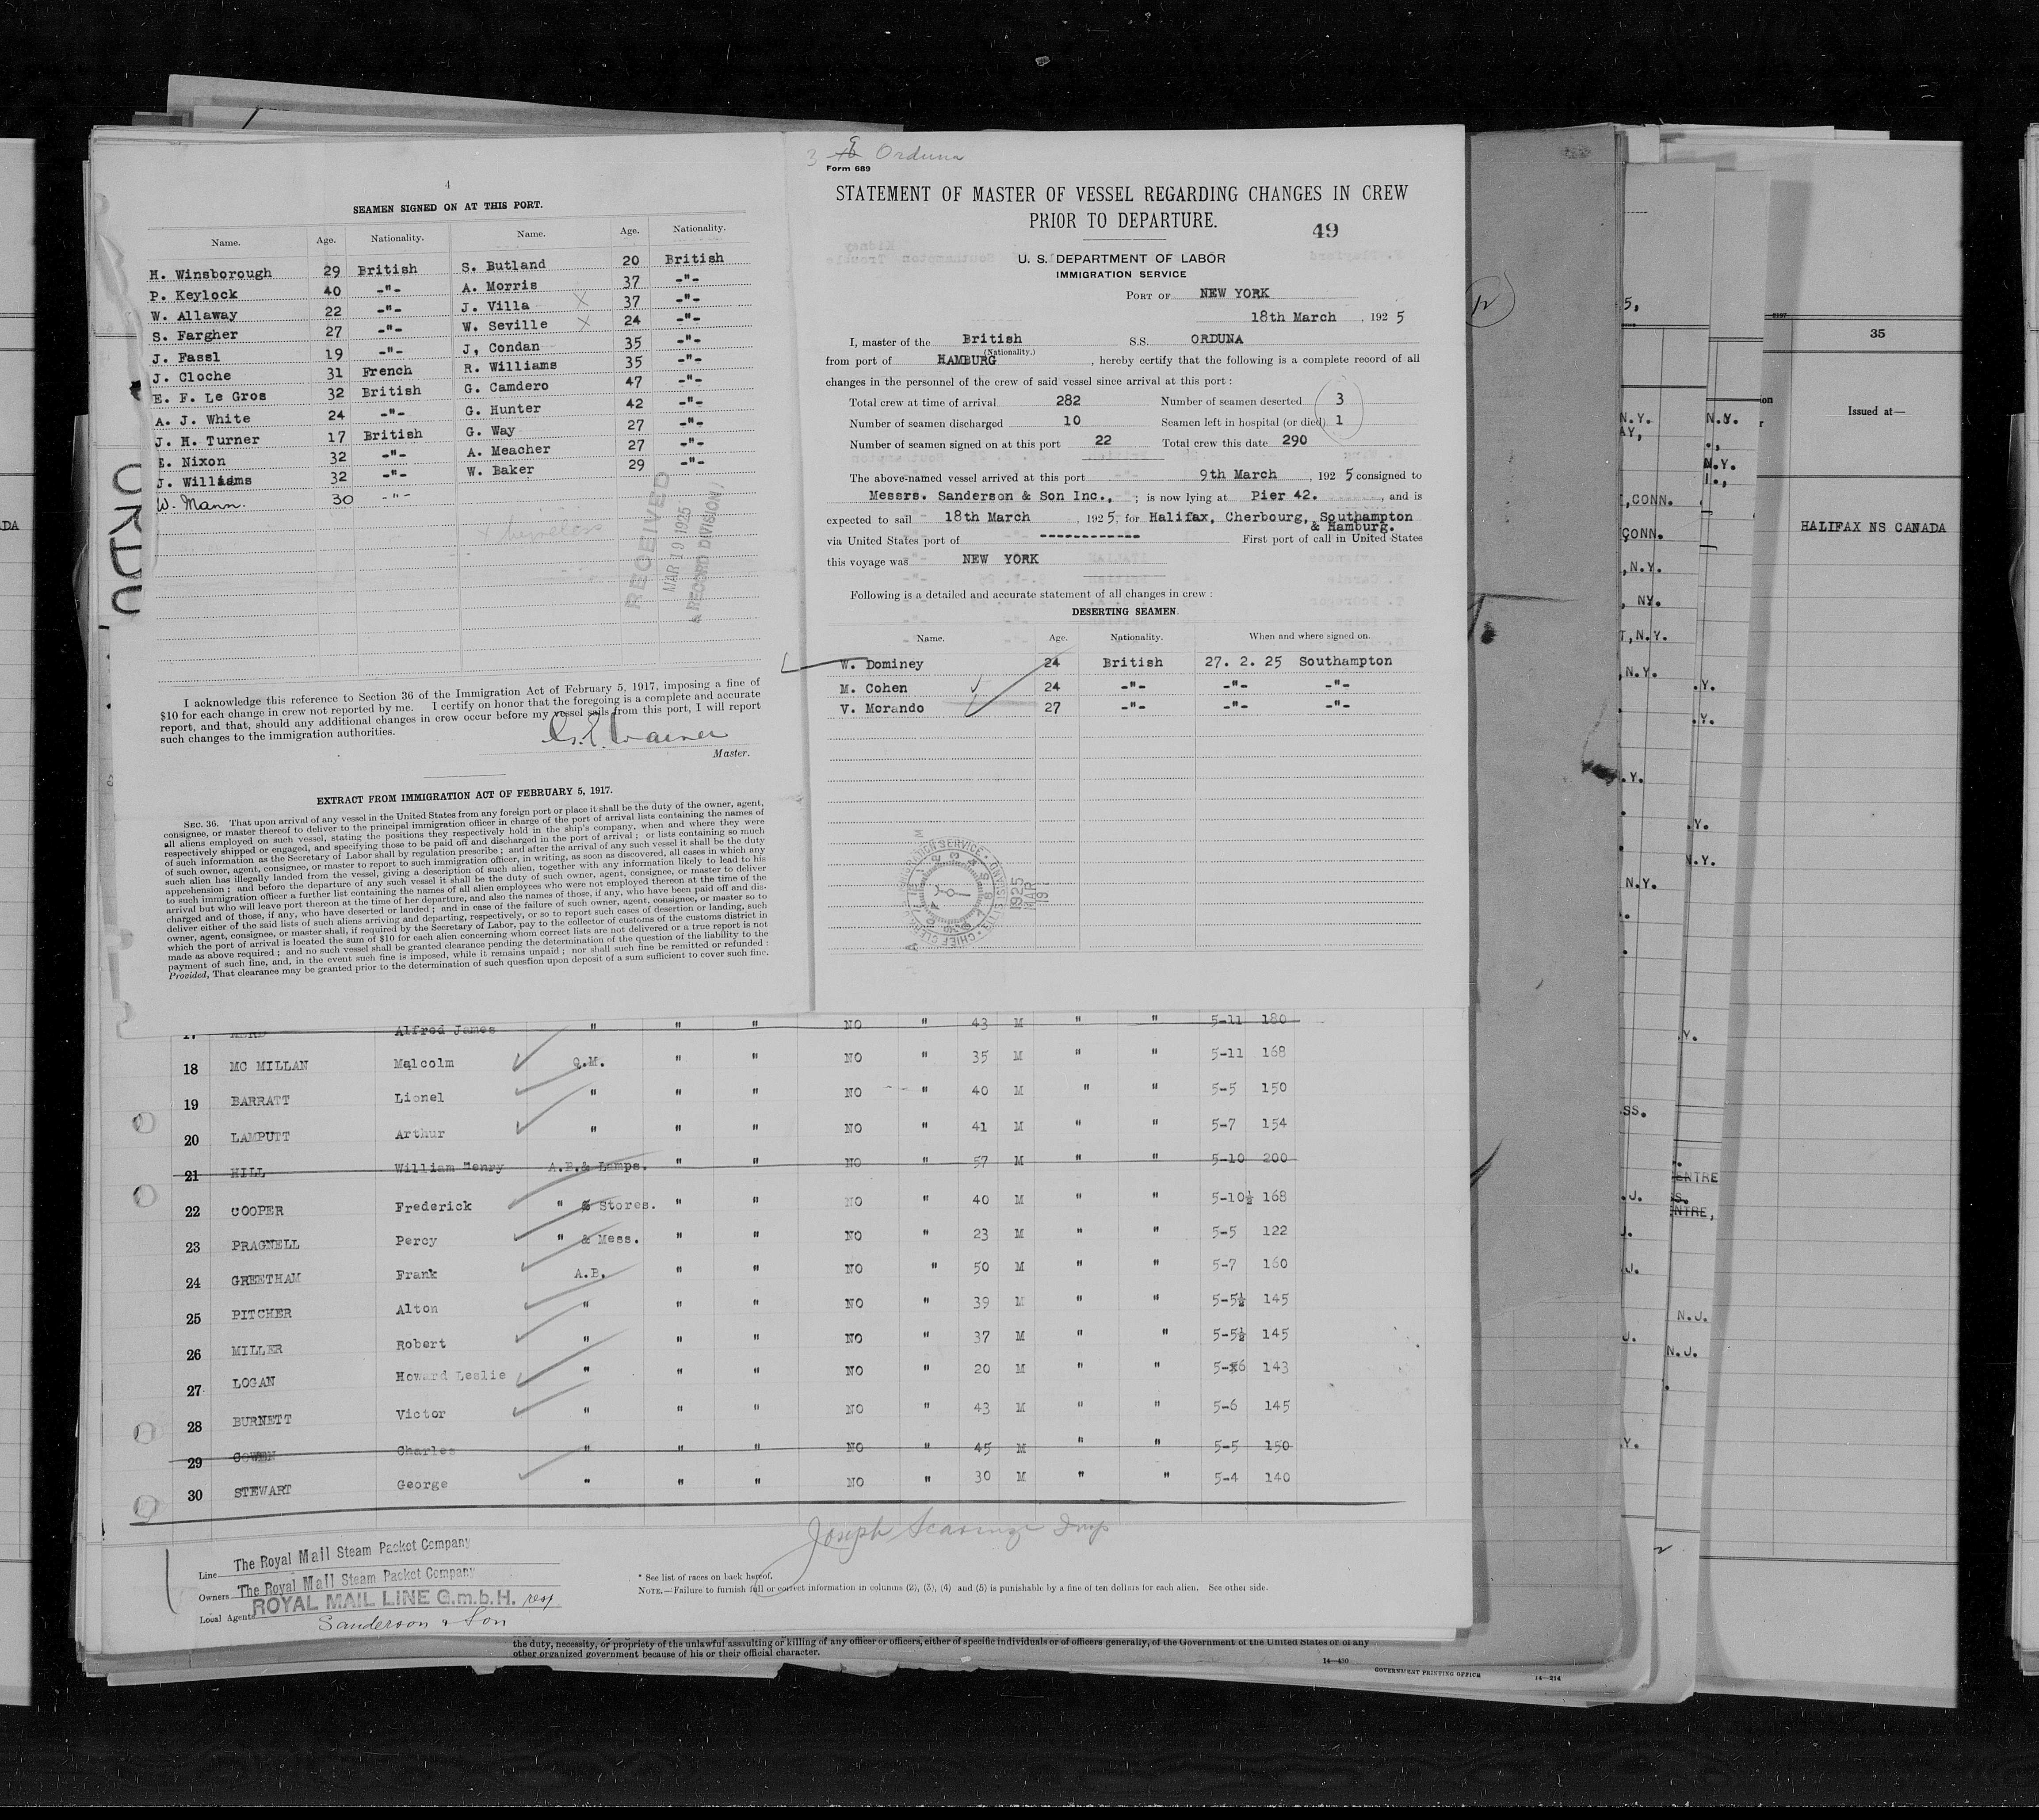 4
SEAMEN SIGNED ON AT THIS PORT.
Name. Age. Nationality. Name. Age. Nationality.
H. Winsborough 29 British S. Butland 20 British
P. Keylock 40 -"- A. Morris 37 -"-
W. Allaway 22 -"- J. Villa X 37 -"-
S. Fargher 27 -"- W. Seville X 24 -"-
J. Fassl 19 -"- J, Condan 35 -"-
J. Cloche 31 French R. Williams 35 -"-
E. F. Le Gros 32 British G. Camdero 47 -"-
A. J. White 24 -"- G. Hunter 42 -"-
J. H. Turner 17 British G. Way 27 -"-
E. Nixon 32 -"- A. Meacher 27 -"-
J. Williams 32 -"- W. Baker 29 -"-
W. Mann. 30 -"-
RECEIVED
MAR 19 1925
RECORD DIVISION
I acknowledge this reference to Section 36 of the Immigration Act of February 5, 1917, imposing a fine of
$10 for each change in crew not reported by me. I certify on honor that the foregoing is a complete and accurate
report, and that, should any additional changes in crew occur before my vessel sails from this port, I will report
such changes to the immigration authorities.
Master.
EXTRACT FROM IMMIGRATION ACT OF FEBRUARY 5, 1917.
SEC. 36. That upon arrival of any vessel in the United States from any foreign port or place it shall be the duty of the owner, agent,
consignee, or master thereof to deliver to the principal immigration officer in charge of the port of arrival lists containing the names of
all aliens employed on such vessel, stating the positions they respectively hold in the ship's company, when and where they were
respectively shipped or engaged, and specifying those to be paid off and discharged in the port of arrival; or lists containing so much
of such information as the Secretary of Labor shall by regulation prescribe; and after the arrival of any such vessel it shall be the duty
of such owner, agent, consignee, or master to report to such immigration officer, in writing, as soon as discovered, all cases in which any
such alien has illegally landed from the vessel, giving a description of such alien, together with any information likely to lead to his
apprehension; and before the departure of any such vessel it shall be the duty of such owner, agent, consignee, or master to deliver
to such immigration officer a further list containing the names of all alien employees who were not employed thereon at the time of the
arrival but who will leave port thereon at the time of her departure, and also the names of those, if any, who have been paid off and dis-
charged and of those, if any, who have deserted or landed; and in case of the failure of such owner, agent, consignee, or master so to
deliver either of the said lists of such aliens arriving and departing, respectively, or so to report such cases of desertion or landing, such
owner, agent, consignee, or master shall, if required by the Secretary of Labor, pay to the collector of customs of the customs district in
which the port of arrival is located the sum of $10 for each alien concerning whom correct lists are not delivered or a true report is not
made as above required; and no such vessel shall be granted clearance pending the determination of the question of the liability to the
payment of such fine, and, in the event such fine is imposed, while it remains unpaid; nor shall such fine be remitted or refunded:
Provided, That clearance may be granted prior to the determination of such question upon deposit of a sum sufficient to cover such fine.
3 Orduna
Form 689
STATEMENT OF MASTER OF VESSEL REGARDING CHANGES IN CREW
PRIOR TO DEPARTURE.
49
U. S. DEPARTMENT OF LABOR
IMMIGRATION SERVICE
PORT OF NEW YORK
18th March, 1925
I, master of the British S.S. ORDUNA
(Nationality.)
from port of HAMBURG, hereby certify that the following is a complete record of all
changes in the personnel of the crew of said vessel since arrival at this port:
Total crew at time of arrival 282 Number of seamen deserted 3
Number of seamen discharged 10 Seamen left in hospital (or died) 1
Number of seamen signed on at this port 22 Total crew this date 290
The above-named vessel arrived at this port 9th March, 1925 consigned to
Messrs. Sanderson & Son Inc., ; is now lying at Pier 42. , and is
expected to sail 18th March, 1925, for Halifax, Cherbourg, Southampton
& Hamburg.
via United States port of ------------ First port of call in United States
this voyage was NEW YORK
Following is a detailed and accurate statement of all changes in crew:
DESERTING SEAMEN.
Name. Age. Nationality. When and where signed on.
W. Dominey 24 British 27. 2. 25 Southampton
M. Cohen 24 -"- -"- -"-
V. Morando 27 -"- -"- -"-
1925
MAR
19
17 Alfred James " " " NO " 43 M " " 5-11 180
18 MC MILLAN Malcolm Q.M. " " NO " 35 M " " 5-11 168
19 BARRATT Lionel " " " NO " 40 M " " 5-5 150
20 LAMPUTT Arthur " " " NO " 41 M " " 5-7 154
21 HILL William Henry A.B.& Lamps. " " NO " 57 M " " 5-10 200
22 COOPER Frederick " & Stores. " " NO " 40 M " " 5-10½ 168
23 PRAGNELL Percy " & Mess. " " NO " 23 M " " 5-5 122
24 GREETHAM Frank A.B. " " NO " 50 M " " 5-7 160
25 PITCHER Alton " " " NO " 39 M " " 5-5½ 145
26 MILLER Robert " " " NO " 37 M " " 5-5½ 145
27 LOGAN Howard Leslie " " " NO " 20 M " " 5-6 143
28 BURNETT Victor " " " NO " 43 M " " 5-6 145
29 COWEN Charles " " " NO " 45 M " " 5-5 150
30 STEWART George " " " NO " 30 M " " 5-4 140
Joseph
Line The Royal Mail Steam Packet Company
Owners The Royal Mail Steam Packet Company
ROYAL MAIL LINE G.m.b.H.
Local Agents Sanderson & Son
* See list of races on back hereof.
NOTE.—Failure to furnish full or correct information in columns (2), (3), (4) and (5) is punishable by a fine of ten dollars for each alien. See other side.
the duty, necessity, or propriety of the unlawful assaulting or killing of any officer or officers, either of specific individuals or of officers generally, of the Government of the United States or of any
other organized government because of his or their official character.
14—430
GOVERNMENT PRINTING OFFICE 14—214
35
Issued at—
HALIFAX NS CANADA